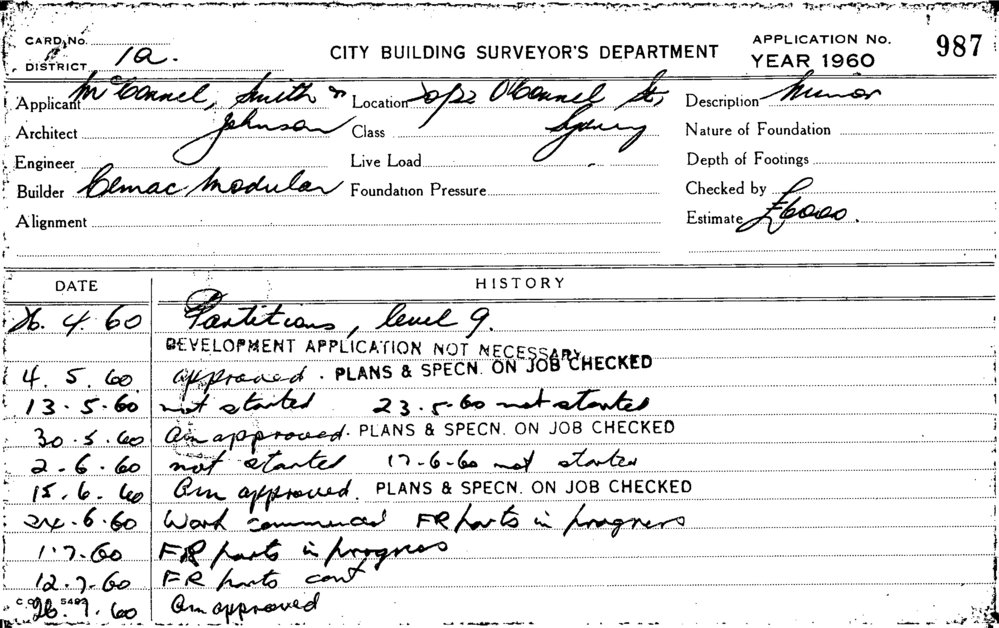 CARD No.
DISTRICT 1a.
CITY BUILDING SURVEYOR'S DEPARTMENT
APPLICATION No. 987
YEAR 1960
Applicant McConnel, Smith & Johnson
Location 20/22 O'Connel St, Sydney
Description Minor
Architect
Class
Nature of Foundation
Engineer
Live Load
Depth of Footings
Builder Clemac Modular
Foundation Pressure
Checked by
Alignment
Estimate £6000.
DATE HISTORY
26. 4. 60 Partitions, level 9.
DEVELOPMENT APPLICATION NOT NECESSARY
4. 5. 60 approved. PLANS & SPECN. ON JOB CHECKED
13.5.60 not started 23.5.60 not started
30.5.60 Am approved. PLANS & SPECN. ON JOB CHECKED
2.6.60 not started 17-6-60 not started
15.6.60 Am approved. PLANS & SPECN. ON JOB CHECKED
24.6.60 Work commenced FR parts in progress
1.7.60 FR parts in progress
12.7.60 FR parts cont
26.7.60 Am approved